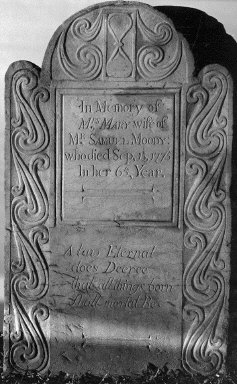 In Memory of
Mrs. Mary wife of
Mr. Samuel Moody
who died Sep. 1773
In her 6 Year.
A law Eternal
does Decree
that all things born
shall mortal Be